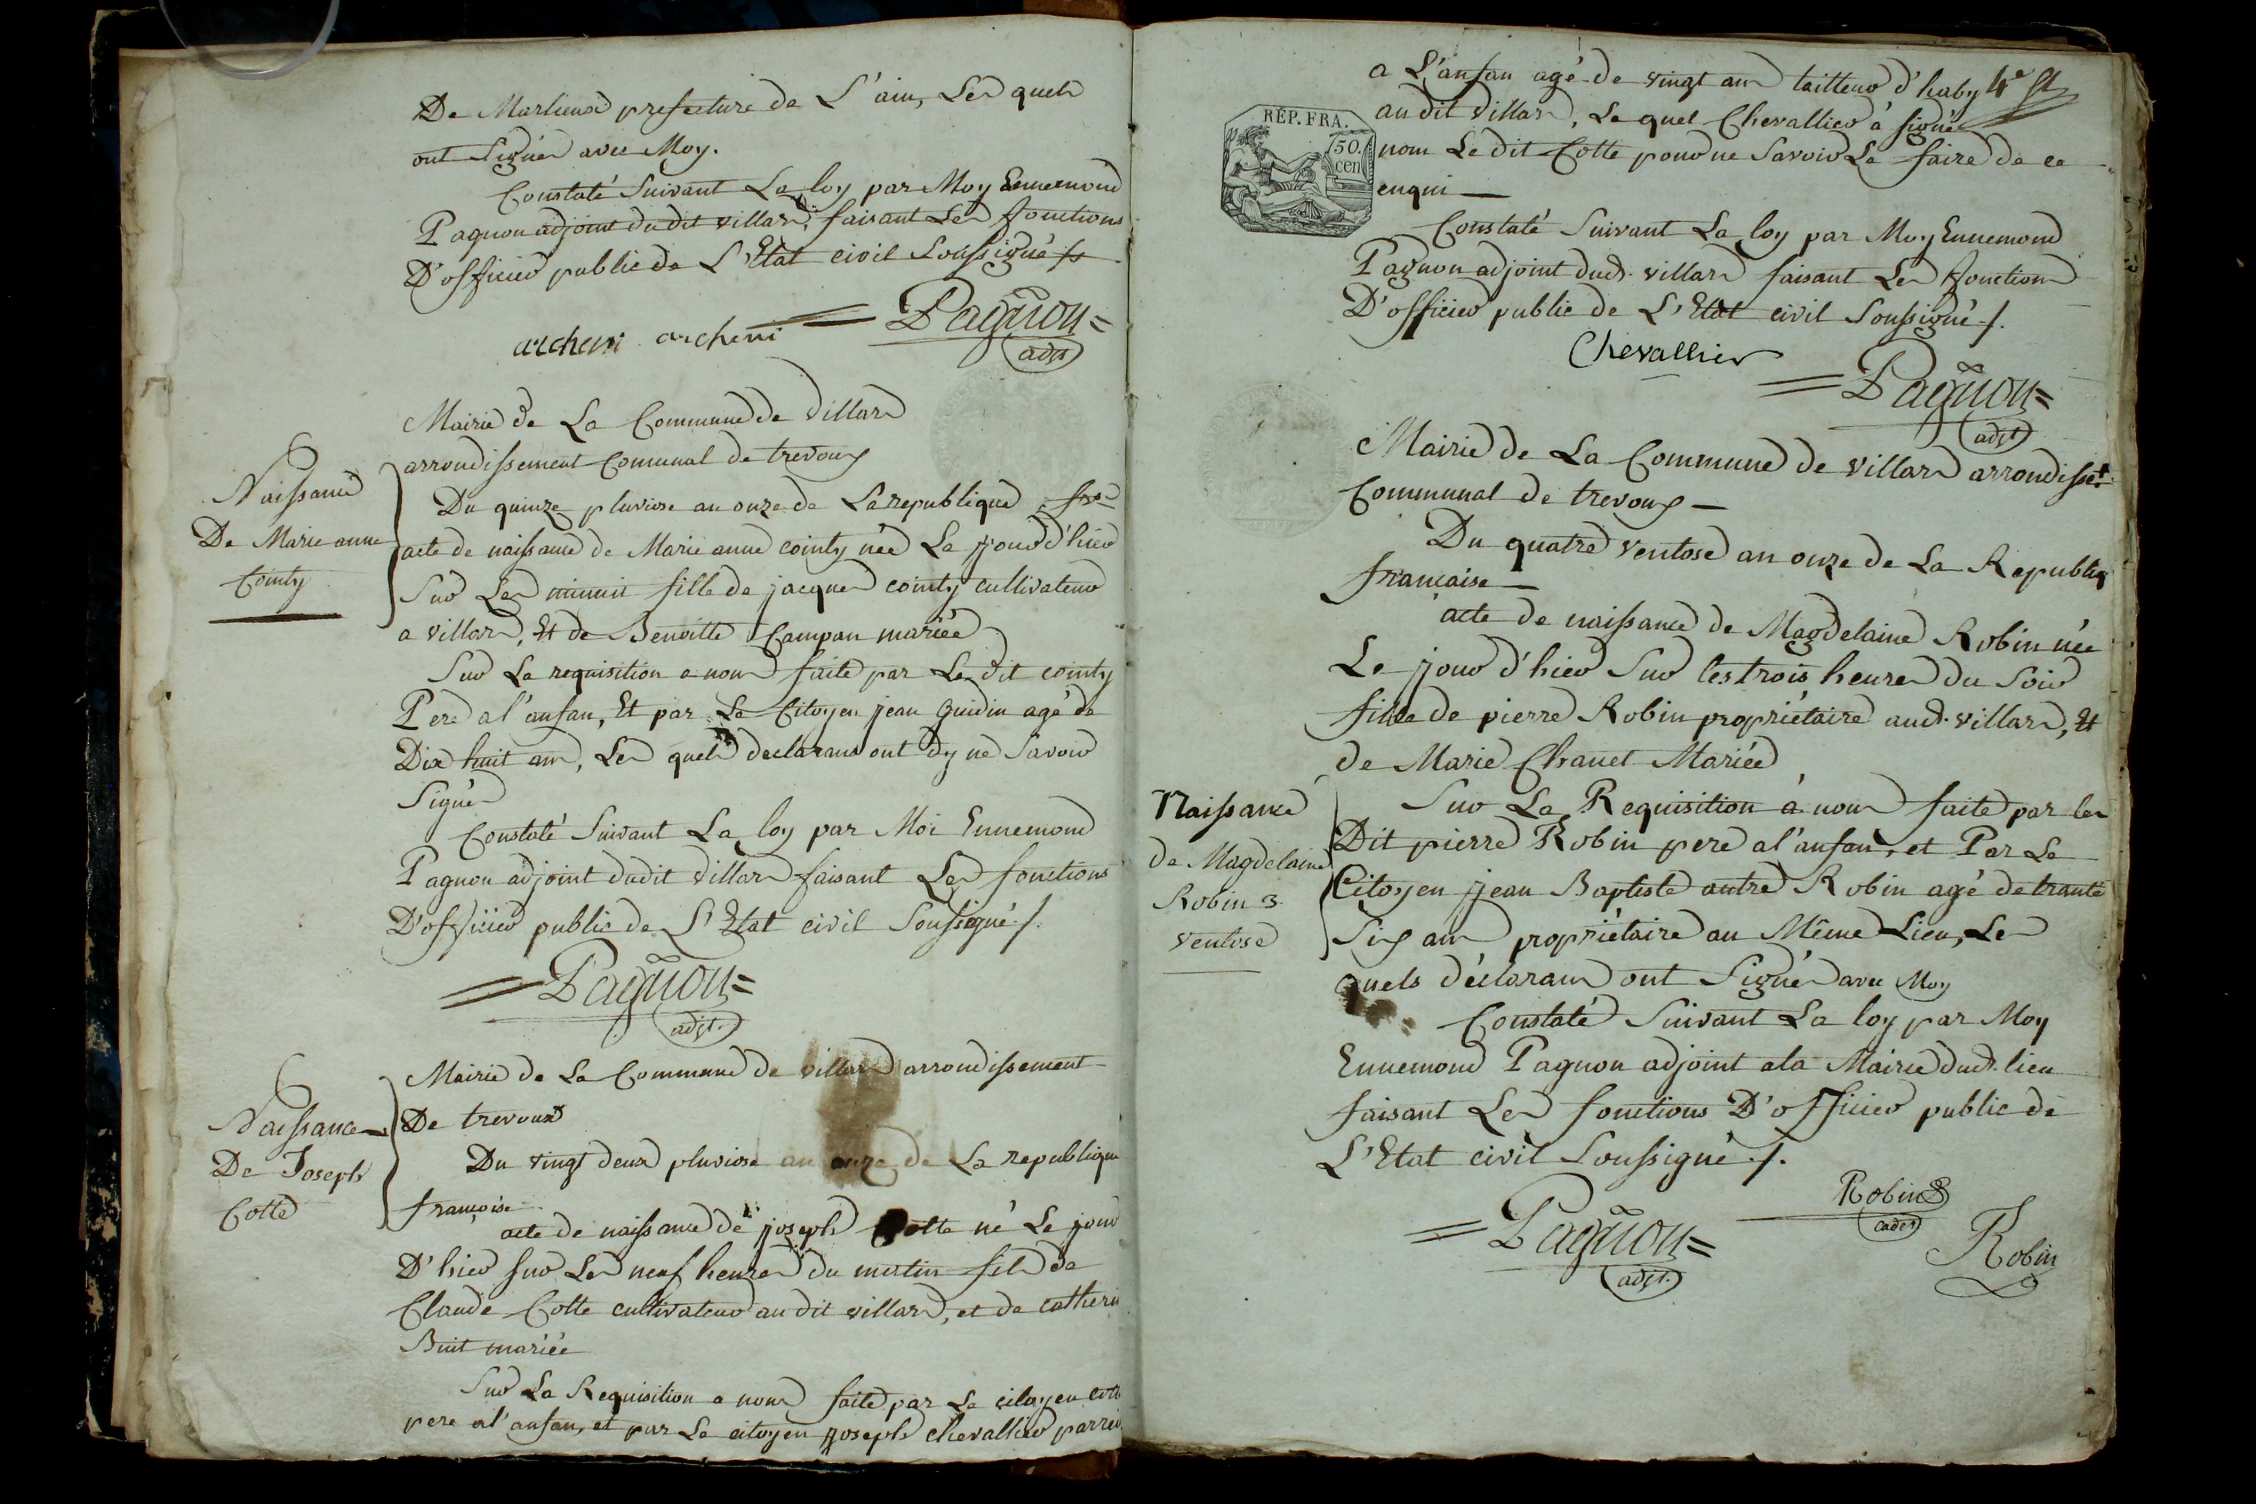 De Marlieux prefecture de L'ain, Les quels
ont Signés avec Moy.
Constaté Suivant La loy par Moy Ennemond
Pagnon adjoint du dit villars, faisant Les fonctions
D'officier public de L'Etat civil Soussigné
archeni archeni = Pagnon =
adjt
Mairie de La Commune de Villars
arrondissement Communal de trevoux
Naissance
De Marie anne
Cointy
Du quinze pluviose an onze de La republique fse
acte de naissance de Marie anne cointy née Le jour d'hier
Sur Les minuit fille de jacques cointy cultivateur
a villars, Et de Benoitte Campan mariée
Sur La requisition a nous faite par Le dit cointy
Pere a l'anfan, Et par Le Citoyen jean Guidin agé de
Dix huit ans, Les quels declarans ont dy ne Savoir
Signér
Constaté Suivant La loy par Moi Ennemond
Pagnon adjoint dudit Villars faisant Les fonctions
D'officier public de L'Etat civil Soussigné ./.
= Pagnon =
adjt.
Mairie de La Commune de villars arrondissement
De trevoux
Naissance
De Joseph
Cotte
Du vingt deux pluviose an onze de La republique
françoise
acte de naissance de joseph Cotte né Le jour
D'hier sur Les neuf heures du matin fils de
Claude Cotte cultivateur au dit villars, et de catherin
Buit mariée
Sur La Requisition a nous faite par Le citoyen cott
pere a l'anfan, et par Le citoyen joseph chevallier parrei
a L'anfan agé de vingt ans tailleur d'haby 4e
RÉP. FRA.
50.
cen
au dit Villars, Le quel Chevallier à signé
non Le dit Cotte pour ne Savoir Le faire de ce
enqui
Constaté Suivant La loy par Moy Ennemond
Pagnon adjoint dud. villars faisant Les fonctions
D'officier public de L'Etat civil Soussigné ./.
Chevallier
= Pagnon =
adjt
Mairie de La Commune de villars arrondisset.
Communal de trevoux
Du quatre ventose an onze de La Republiq
française
acte de naissance de Magdelaine Robin née
Le jour d'hier Sur les trois heures du Soir
fille de pierre Robin propriétaire aud. villars, Et
de Marie Chanet Mariée
Naissance
de Magdelaine
Robin 3
ventose
Sur La Requisition à nous faite par les
Dit pierre Robin pere a l'anfan, et Par Le
Citoyen jean Baptiste autre Robin agé de trante
Six ans propriétaire au Même Lieu, Les
quels déclarans ont Signés avec Moy
Constaté Suivant La loy par Moy
Ennemond Pagnon adjoint a la Mairie dud. lieu
faisant Les fonctions D'officier public de
L'Etat civil Soussigné ./.
Robin
cadet
= Pagnon =
adjt.
Robin